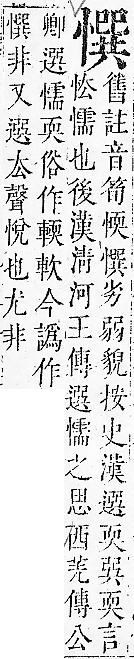 㦏
舊註音筍愞㦏劣弱貌按史漢選耎巽耎言
怯懦也後漢淸河王傳選懦之思西羌傳公
卿選懦耎俗作輭軟今譌作
㦏非又選去聲悅也尤非